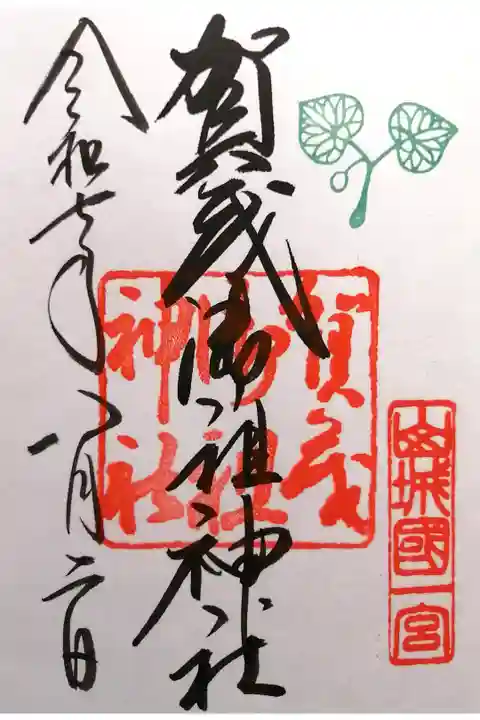 山城國一宮
賀茂御祖神社
賀茂
御祖
神社
令和七年八月二日